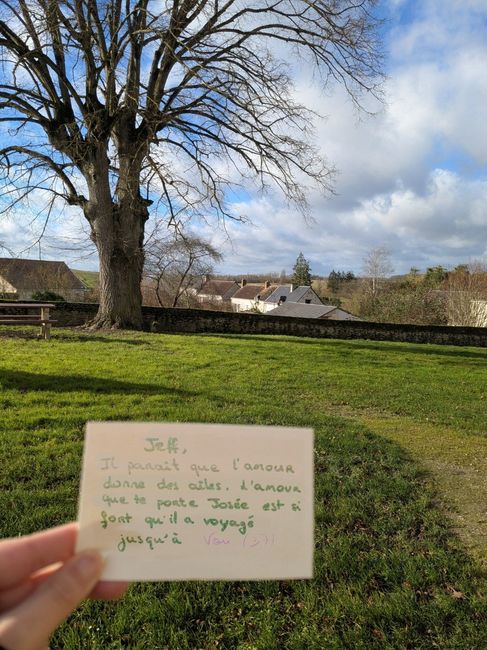 Jeff,
Il parait que l'amour
donne des ailes. L'amour
que te porte Josée est si
fort qu'il a voyagé
jusqu'à (37)